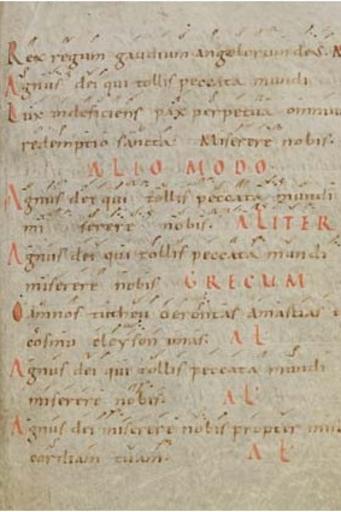 Rex regum gaudium angelorum de S. M
Agnus dei qui tollis peccata mundi
Lux indeficiens pax perpetua omnium
redemptio sancta Miserere nobis.
ALIO MODO
Agnus dei qui tollis peccata mundi
mi serere nobis. ALITER
Agnus dei qui tollis peccata mundi
miserere nobis GRECUM
O amnos tutheu oerontas amastias
cosmu eleyson ymas. AL
Agnus dei qui tollis peccata mundi
miserere nobis. AL
Agnus dei miserere nobis propter
cordiam tuam. AL